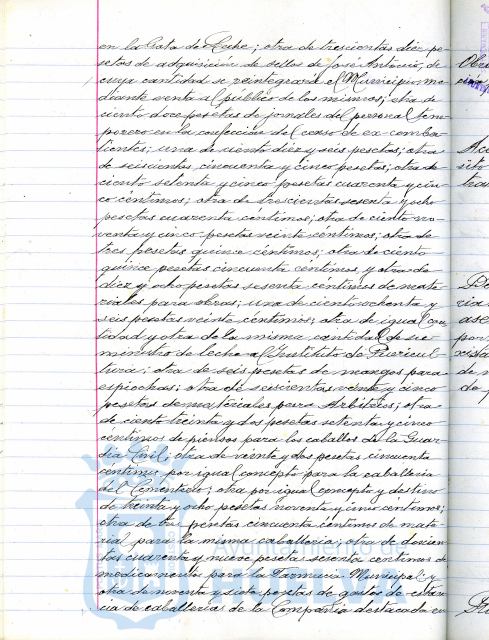 en la Gota de Leche; otra de trescientas diez pe-
setas de adquisición de sellos de José Antonio, de
cuya cantidad se reintegrará el Municipio me
diante venta al público de los mismos; otra de
ciento doce pesetas de jornales del personal tem-
porero en la confección del censo de ex-comba-
tientes; una de ciento diez y seis pesetas; otra
de seiscientas cincuenta y cinco pesetas; otra de
ciento setenta y cinco pesetas cuarenta y cin-
co céntimos; otra de trescientas sesenta y ocho
pesetas cuarenta céntimos; otra de ciento no-
venta y cinco pesetas veinte céntimos; otra de
tres pesetas quince céntimos; otra de ciento
quince pesetas cincuenta céntimos y otra de
diez y ocho pesetas sesenta céntimos de mate-
riales para obras; una de ciento ochenta y
seis pesetas veinte céntimos; otra de igual can
tidad y otra de la misma cantidad de su-
ministro de leche al Instituto de Puericul-
tura; otra de seis pesetas de mangos para
espiochas; otra de seiscientas veinte y cinco
pesetas de materiales para Arbitrios; otra
de ciento treinta y dos pesetas setenta y cinco
céntimos de piensos para los caballos de la Guar
dia Civil; otra de veinte y dos pesetas cincuenta
céntimos por igual concepto para la caballería
del Cementerio; otra por igual concepto y destino
de treinta y ocho pesetas noventa y cinco céntimos;
otra de tres pesetas cincuenta céntimos de mate-
rial para la misma caballería; otra de doscien
tas cuarenta y nueve pesetas sesenta céntimos de
medicamentos para la Farmacia Municipal y
otra de noventa y siete pesetas de gastos de estan
cia de caballerías de la Compañía destacada en